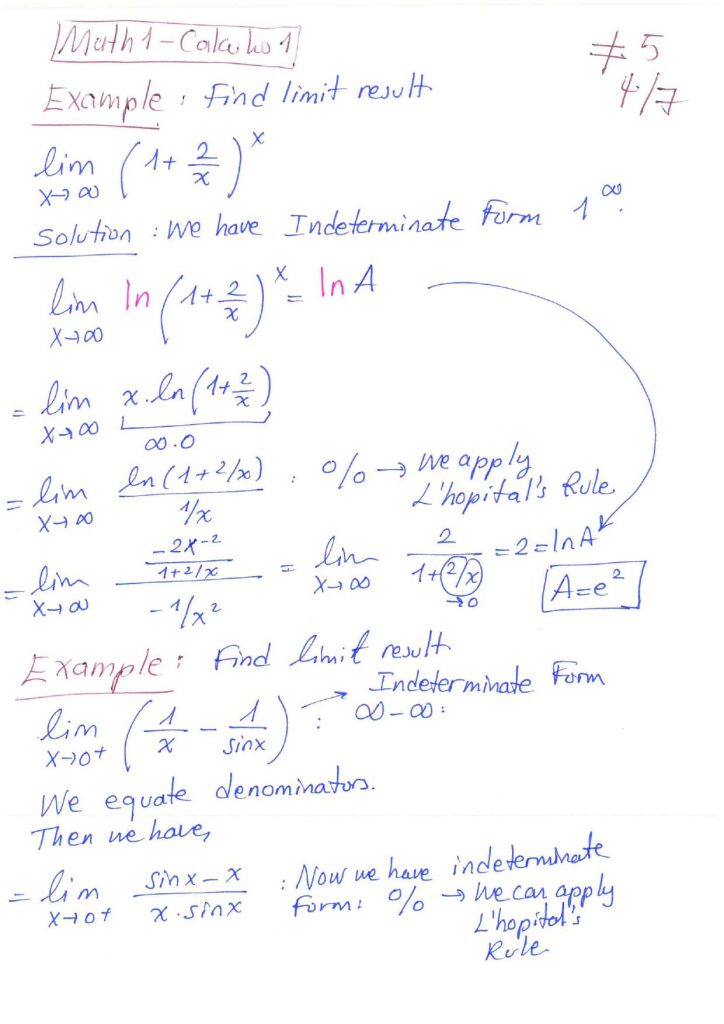 Math1-Calculus1
# 5
4/7
Example: Find limit result
lim x→∞ (1 + 2/x)^x
Solution: We have Indeterminate Form 1^∞.
lim x→∞ ln (1 + 2/x)^x = ln A
= lim x→∞ x. ln (1 + 2/x)
∞.0
= lim x→∞ ln(1+2/x) / 1/x : 0/0 → We apply
L'hopital's Rule
= lim x→∞ (-2x^-2 / 1+2/x) / -1/x^2 = lim x→∞ 2 / 1+(2/x) = 2 = ln A
→0
A=e^2
Example: Find limit result
lim x→0+ (1/x - 1/sinx) : → Indeterminate Form
∞-∞:
We equate denominators.
Then we have,
= lim x→0+ sinx-x / x.sinx : Now we have indeterminate
form: 0/0 → We can apply
L'hopital's
Rule